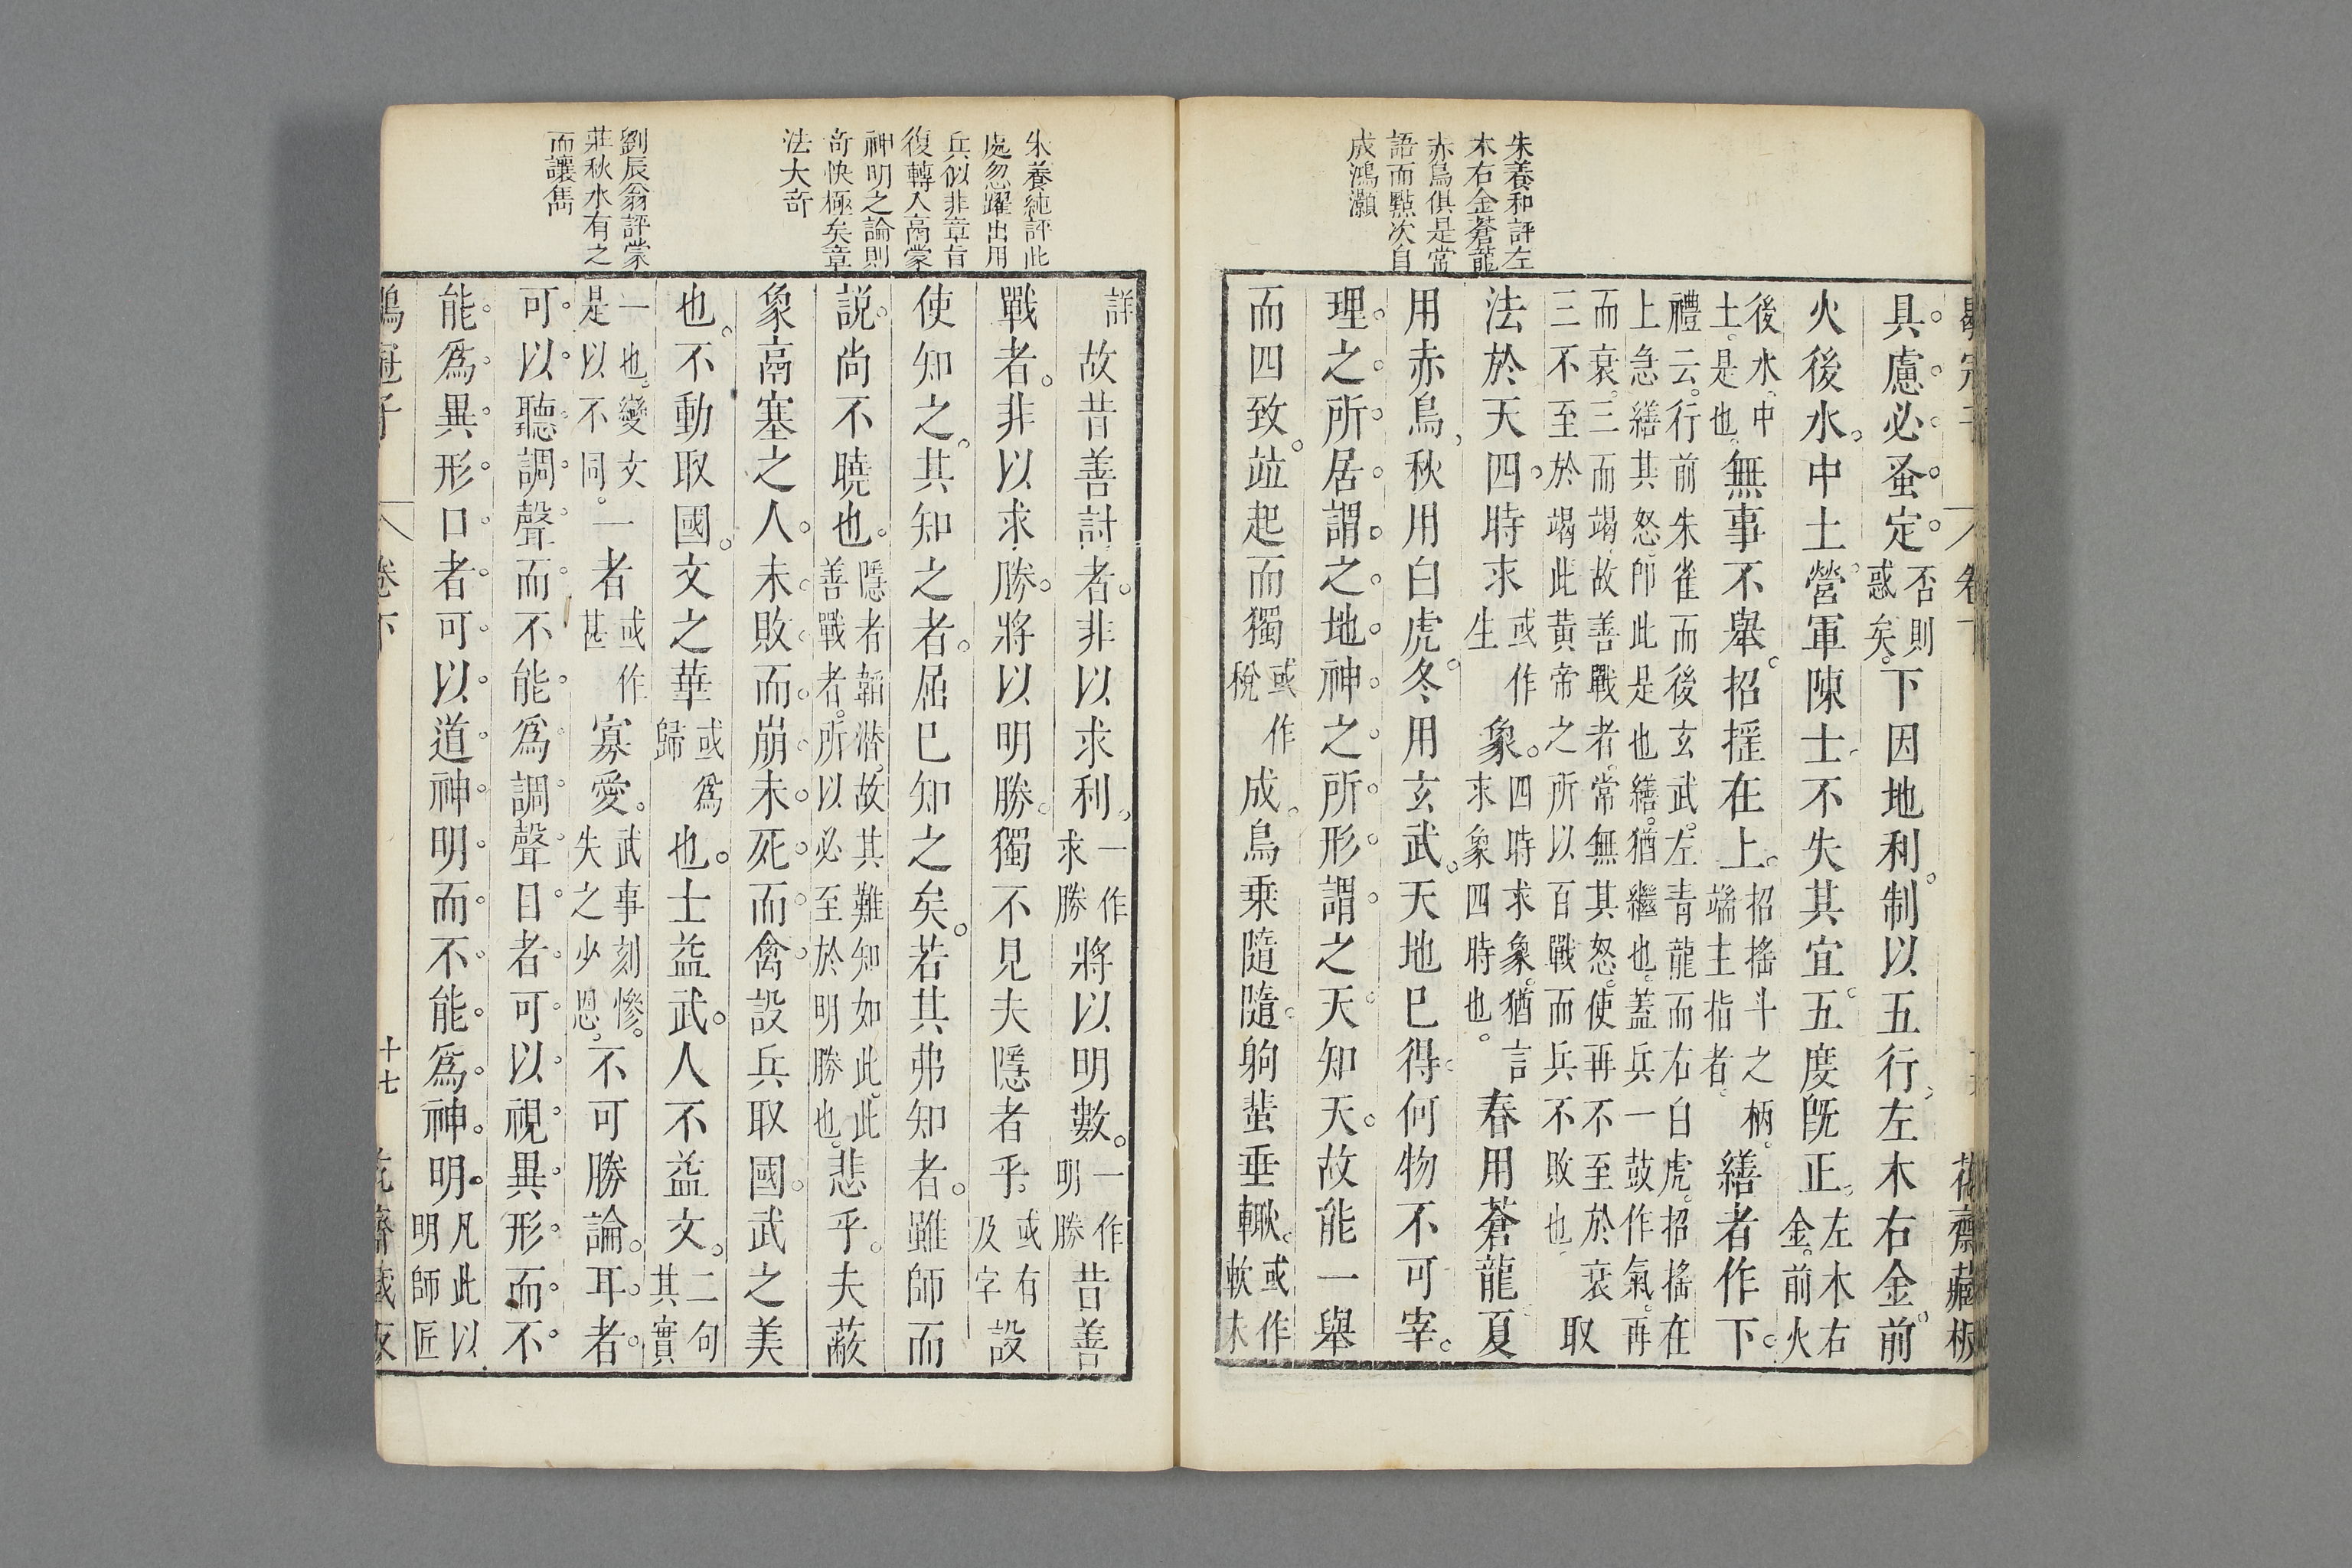 朱養和評左
木右金蒼龍
赤鳥俱是常
語而點次自
成鴻灝
具慮必蚤定。否則惑矣。下因地利。制以五行。左木右金。前
火後水。中土。營軍陳士。不失其宜。五度旣正。左木右金。前火
後水、中土。是也。無事不舉。招搖在上。招搖斗之柄。端主指者。繕者作下。
禮云。行前朱雀而後玄武。左青龍而右白虎。招搖在
上急繕其怒。卽此是也。繕。猶繼也。蓋兵一鼓作氣。再
而衰。三而竭。故善戰者。常無其怒。使再不至於衰
三不至於竭。此黃帝之所以百戰而兵不敗也。取
法於天。四時求或作生象。四時求象。猶言求象四時也。春用蒼龍。夏
用赤鳥。秋用白虎。冬用玄武。天地已得。何物不可宰。
理之所居。謂之地。神之所形。謂之天。知天。故能一舉
而四致。竝起而獨或作稅成。鳥乗隨隨。駒蜚垂輙。或作軟未
詳
故昔善討者。非以求利。一作求勝將以明數。一作明勝昔善
戰者。非以求勝。將以明勝。獨不見夫隱者乎。或有及字設
使知之。其知之者。屈已知之矣。若其弗知者。雖師而
說。尚不曉也。隱者韜潛。故其難知如此。此善戰者。所以必至於明勝也。悲乎。夫蔽
象鬲塞之人。未敗而崩。未死而禽。設兵取國。武之美
也。不動取國。文之華或爲歸也。士益武。人不益文。二句其實
一也。變文是以不同。一者或作甚寡愛。武事刻慘。失之少恩。不可勝論。耳者。
可以聽調聲。而不能爲調聲。目者。可以視異形。而不
能爲異形。口者。可以道神明。而不能爲神明。凡此以明師匠
朱養純評此
處忽躍出用
兵似非章旨
復轉入鬲蒙
神明之論則
奇快極矣章
法大奇
劉辰翁評蒙
莊秋水有之
而讓雋
鶡冠子
卷下
十七
花齋藏板